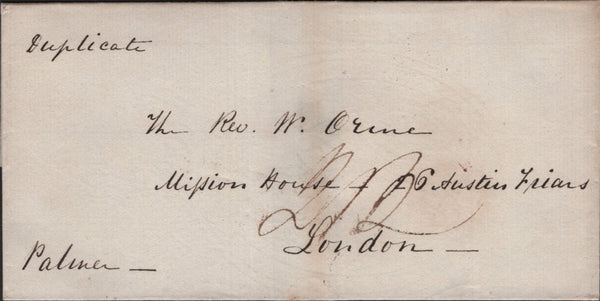 Duplicate
The Rev. W. Orme
Mission House 26 Austin Friars
London —
Palmer —